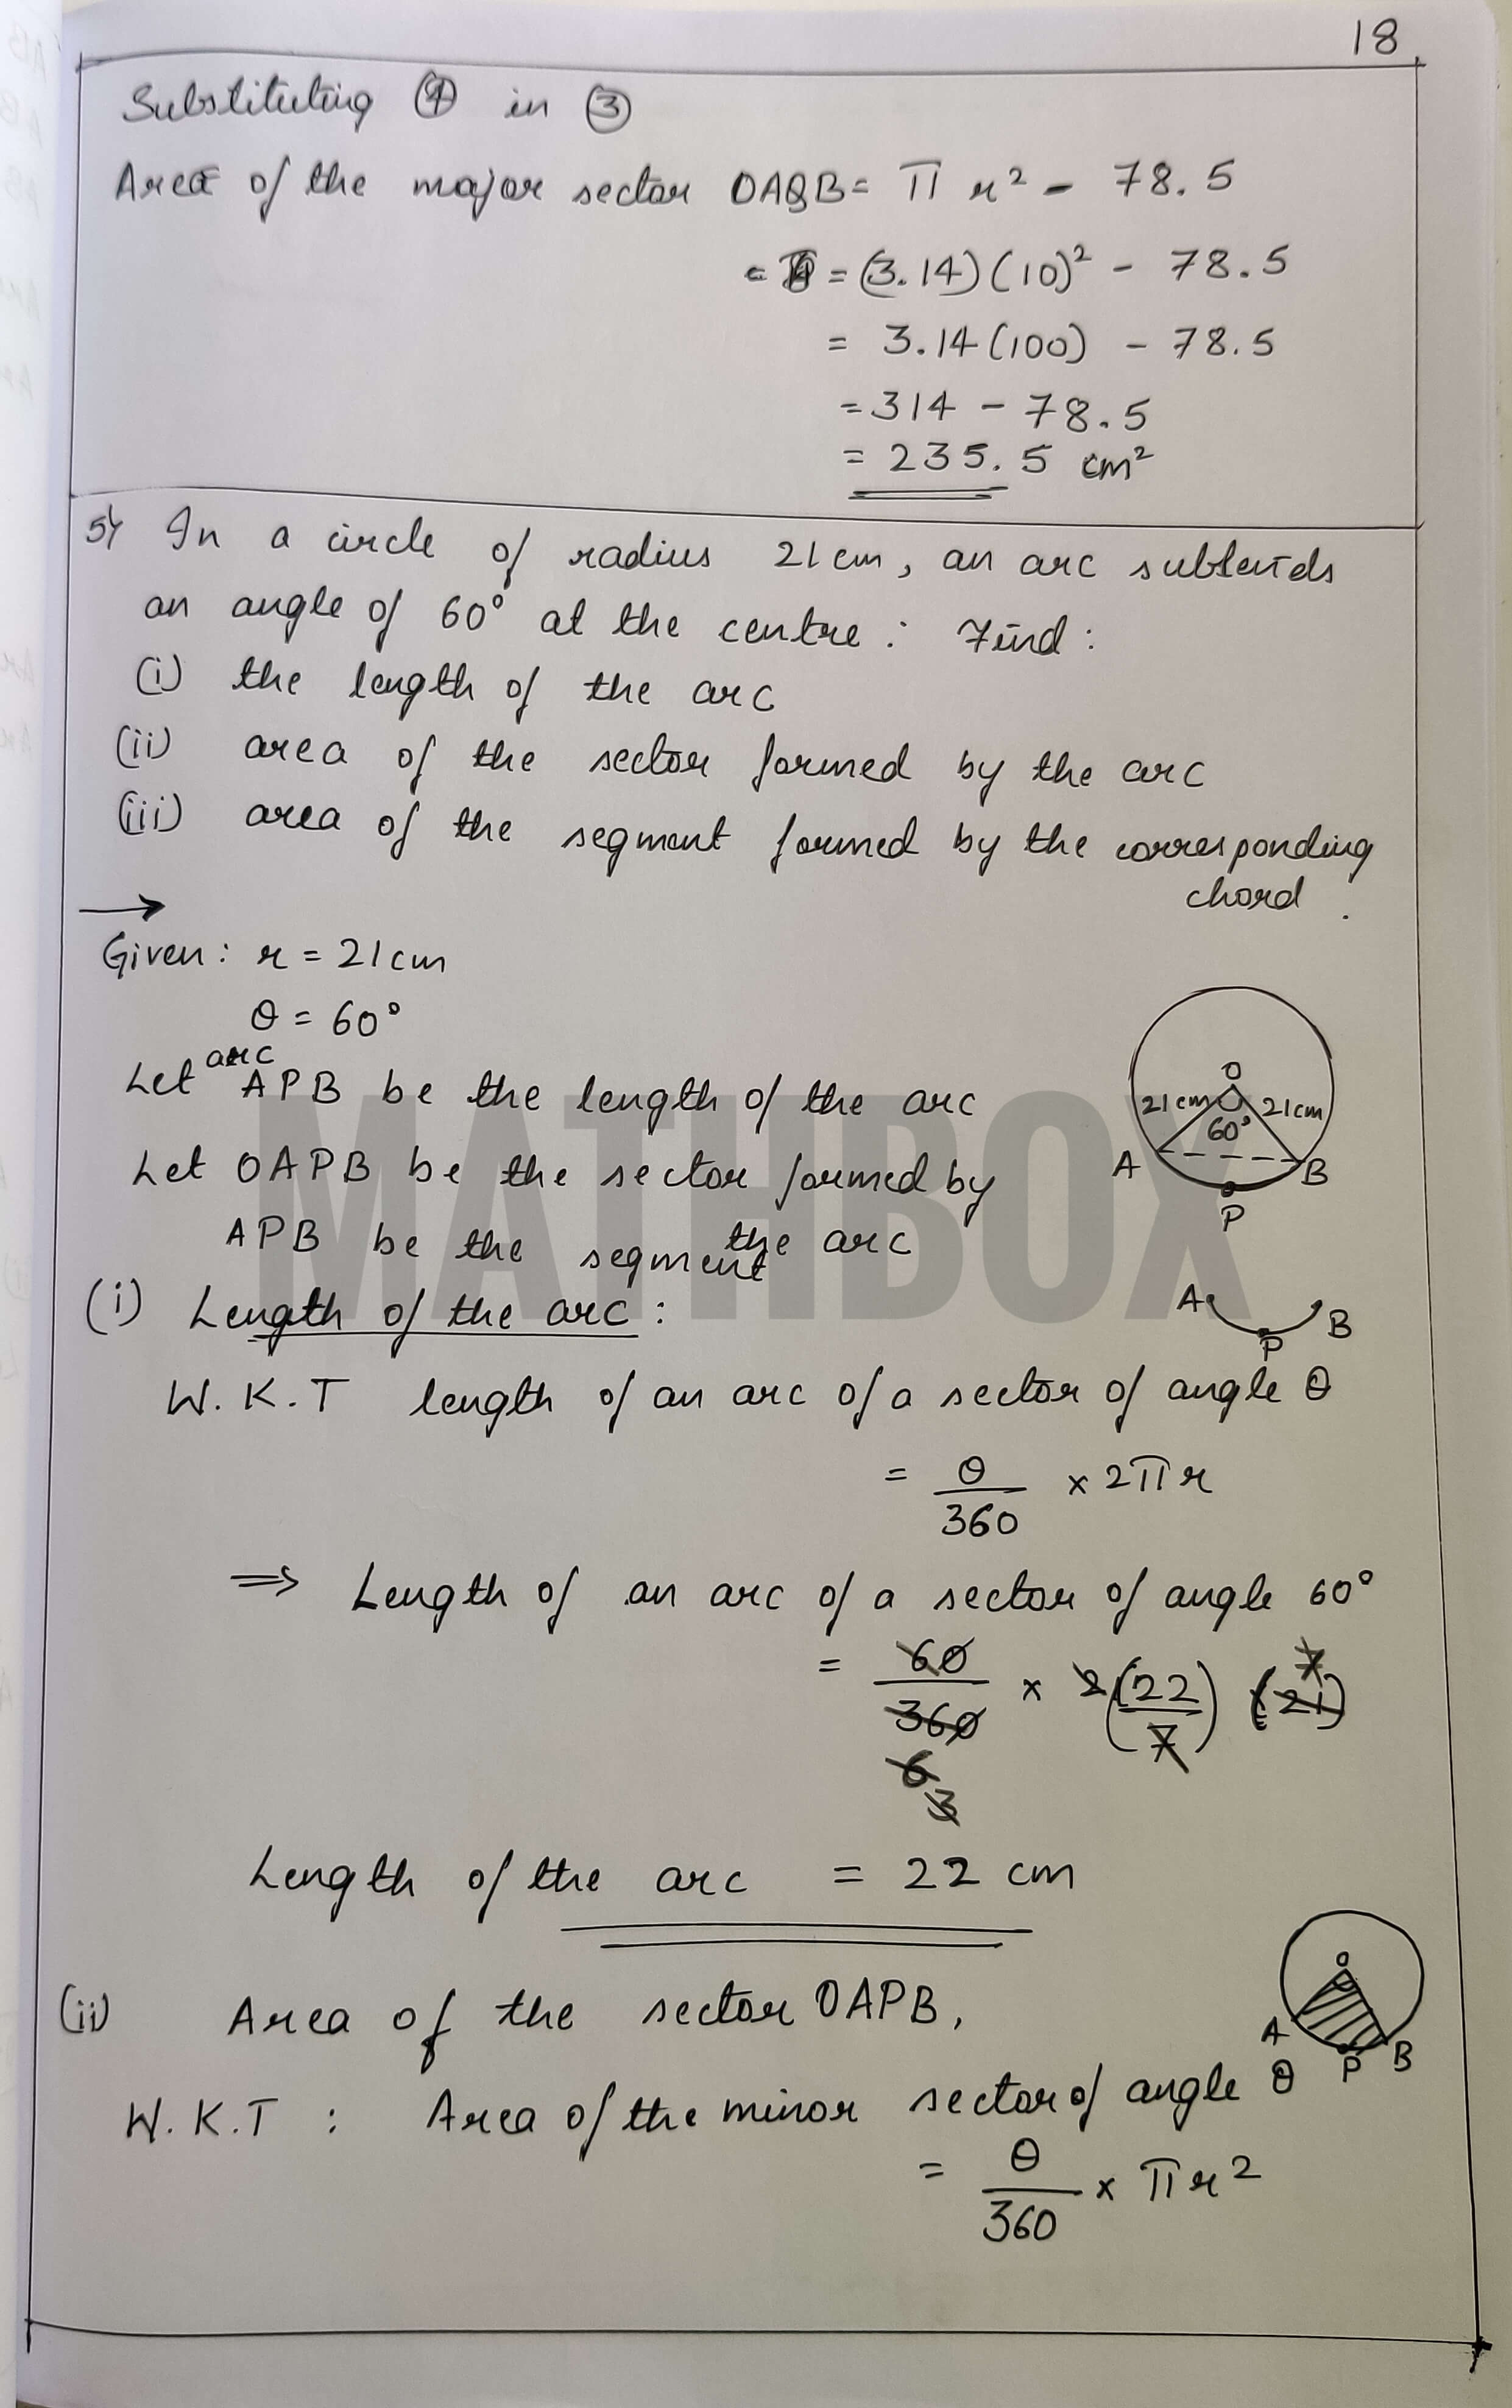 18
Substituting ④ in ③
Area of the major sector OAQB = π r² - 78.5
= = (3.14)(10)² - 78.5
= 3.14(100) - 78.5
= 314 - 78.5
= 235.5 cm²
5) In a circle of radius 21cm, an arc subtends
an angle of 60° at the centre : Find :
(i) the length of the arc
(ii) area of the sector formed by the arc
(iii) area of the segment formed by the corresponding
chord .
→
Given : r = 21cm
θ = 60°
Let arc APB be the length of the arc
Let OAPB be the sector formed by
the arc
APB be the segment
O
21cm 21cm
60°
A B
P
(i) Length of the arc :
A B
P
W.K.T length of an arc of a sector of angle θ
= θ/360 × 2πr
⇒ Length of an arc of a sector of angle 60°
= 60/360 × 2(22/7) (21)
7
6
3
Length of the arc = 22 cm
(ii) Area of the sector OAPB,
O
A P B
W.K.T : Area of the minor sector of angle θ
= θ/360 × πr²
MATHBOX